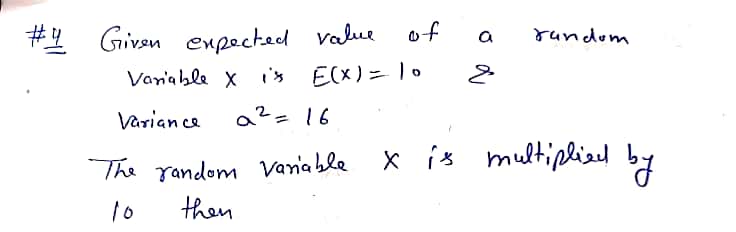 #4 Given expected value of a random
Variable X is E(X) = 10 &
Variance a² = 16
The random Variable X is multiplied by
10 then